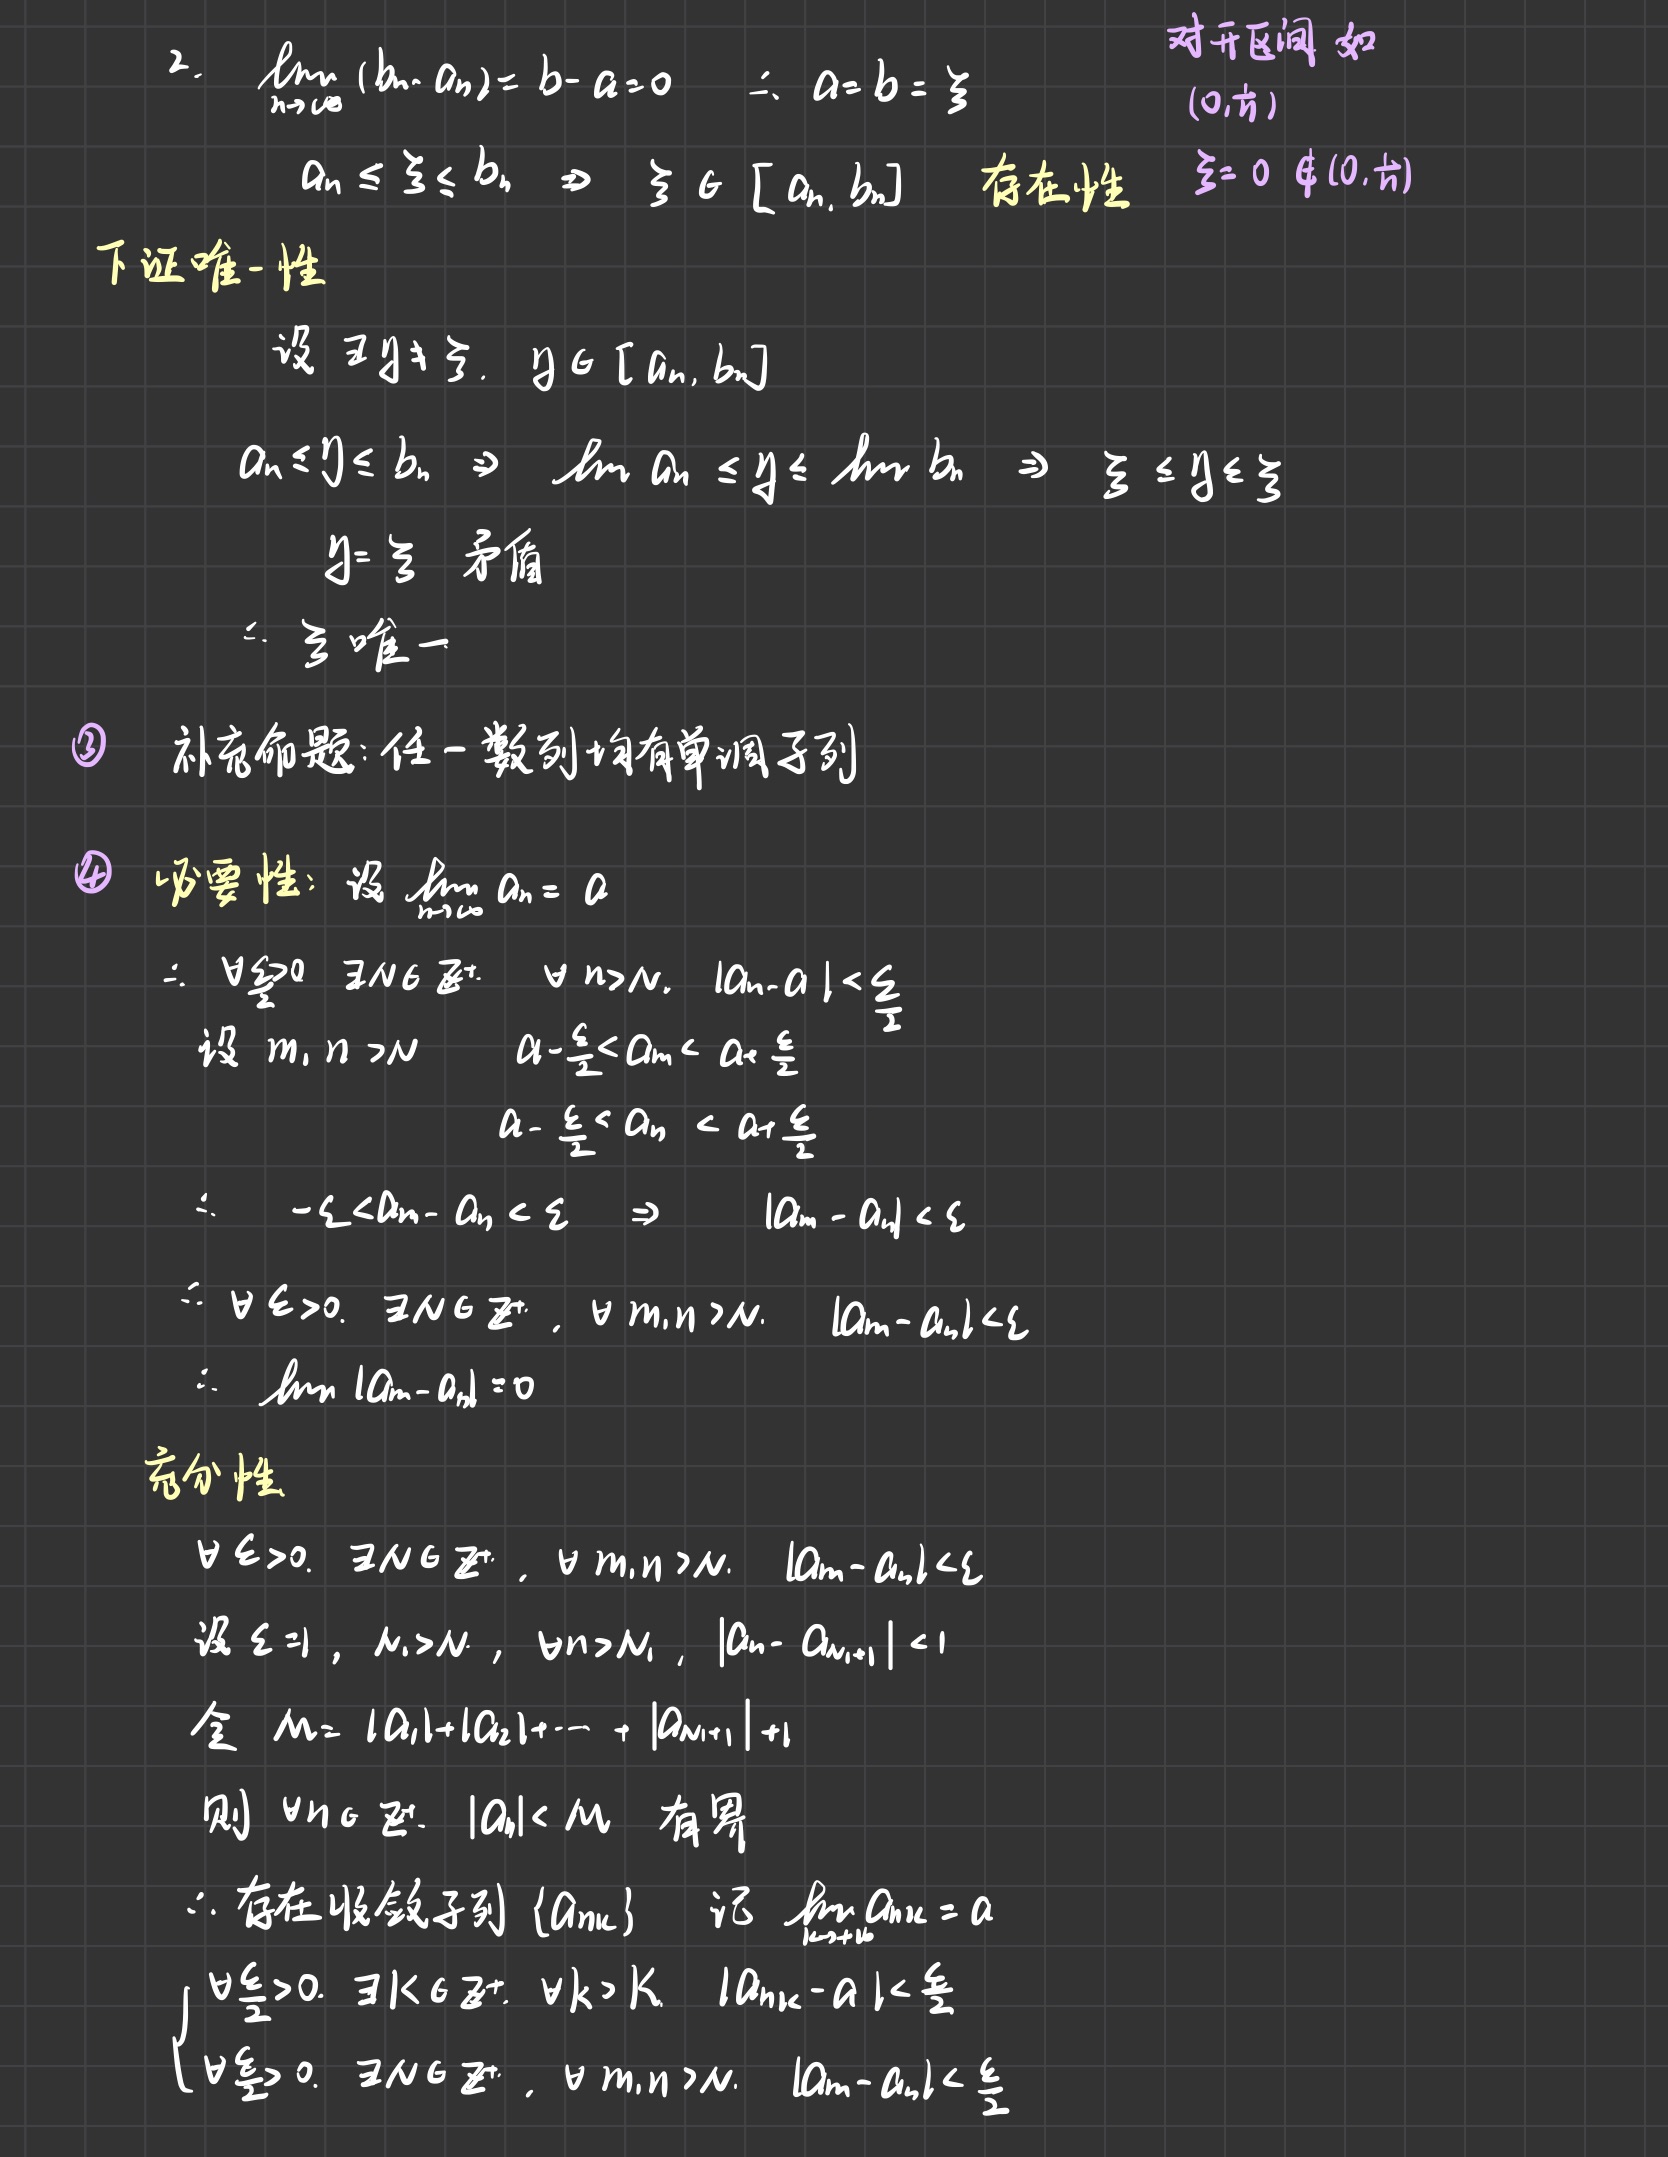 2. lim n→∞ (bn - an) = b - a = 0 ∴ a = b = ξ
对开区间 如
(0, 1/n)
an ≤ ξ ≤ bn ⇒ ξ ∈ [an, bn] 存在性
ξ = 0 ∉ (0, 1/n)
下证唯一性
设 ∃η ≠ ξ. η ∈ [an, bn]
an ≤ η ≤ bn ⇒ lim an ≤ η ≤ lim bn ⇒ ξ ≤ η ≤ ξ
η = ξ 矛盾
∴ ξ 唯一
③ 补充命题: 任一数列均有单调子列
④ 必要性: 设 lim n→∞ an = a
∴ ∀ε/2>0 ∃N∈Z+. ∀n>N. |an - a| < ε/2
设 m, n > N a - ε/2 < am < a + ε/2
a - ε/2 < an < a + ε/2
∴ -ε < am - an < ε ⇒ |am - an| < ε
∴ ∀ε>0. ∃N∈Z+. ∀m,n>N. |am - an| < ε
∴ lim |am - an| = 0
充分性
∀ε>0. ∃N∈Z+. ∀m,n>N. |am - an| < ε
设 ε=1, N1>N, ∀n>N1, |an - aN1+1| < 1
令 M = |a1| + |a2| + ... + |aN1+1| + 1
则 ∀n∈Z+. |an| < M 有界
∴ 存在收敛子列 {ank} 记 lim k→+∞ ank = a
∀ε/2>0. ∃K∈Z+. ∀k>K. |ank - a| < ε/2
∀ε/2>0. ∃N∈Z+. ∀m,n>N. |am - an| < ε/2